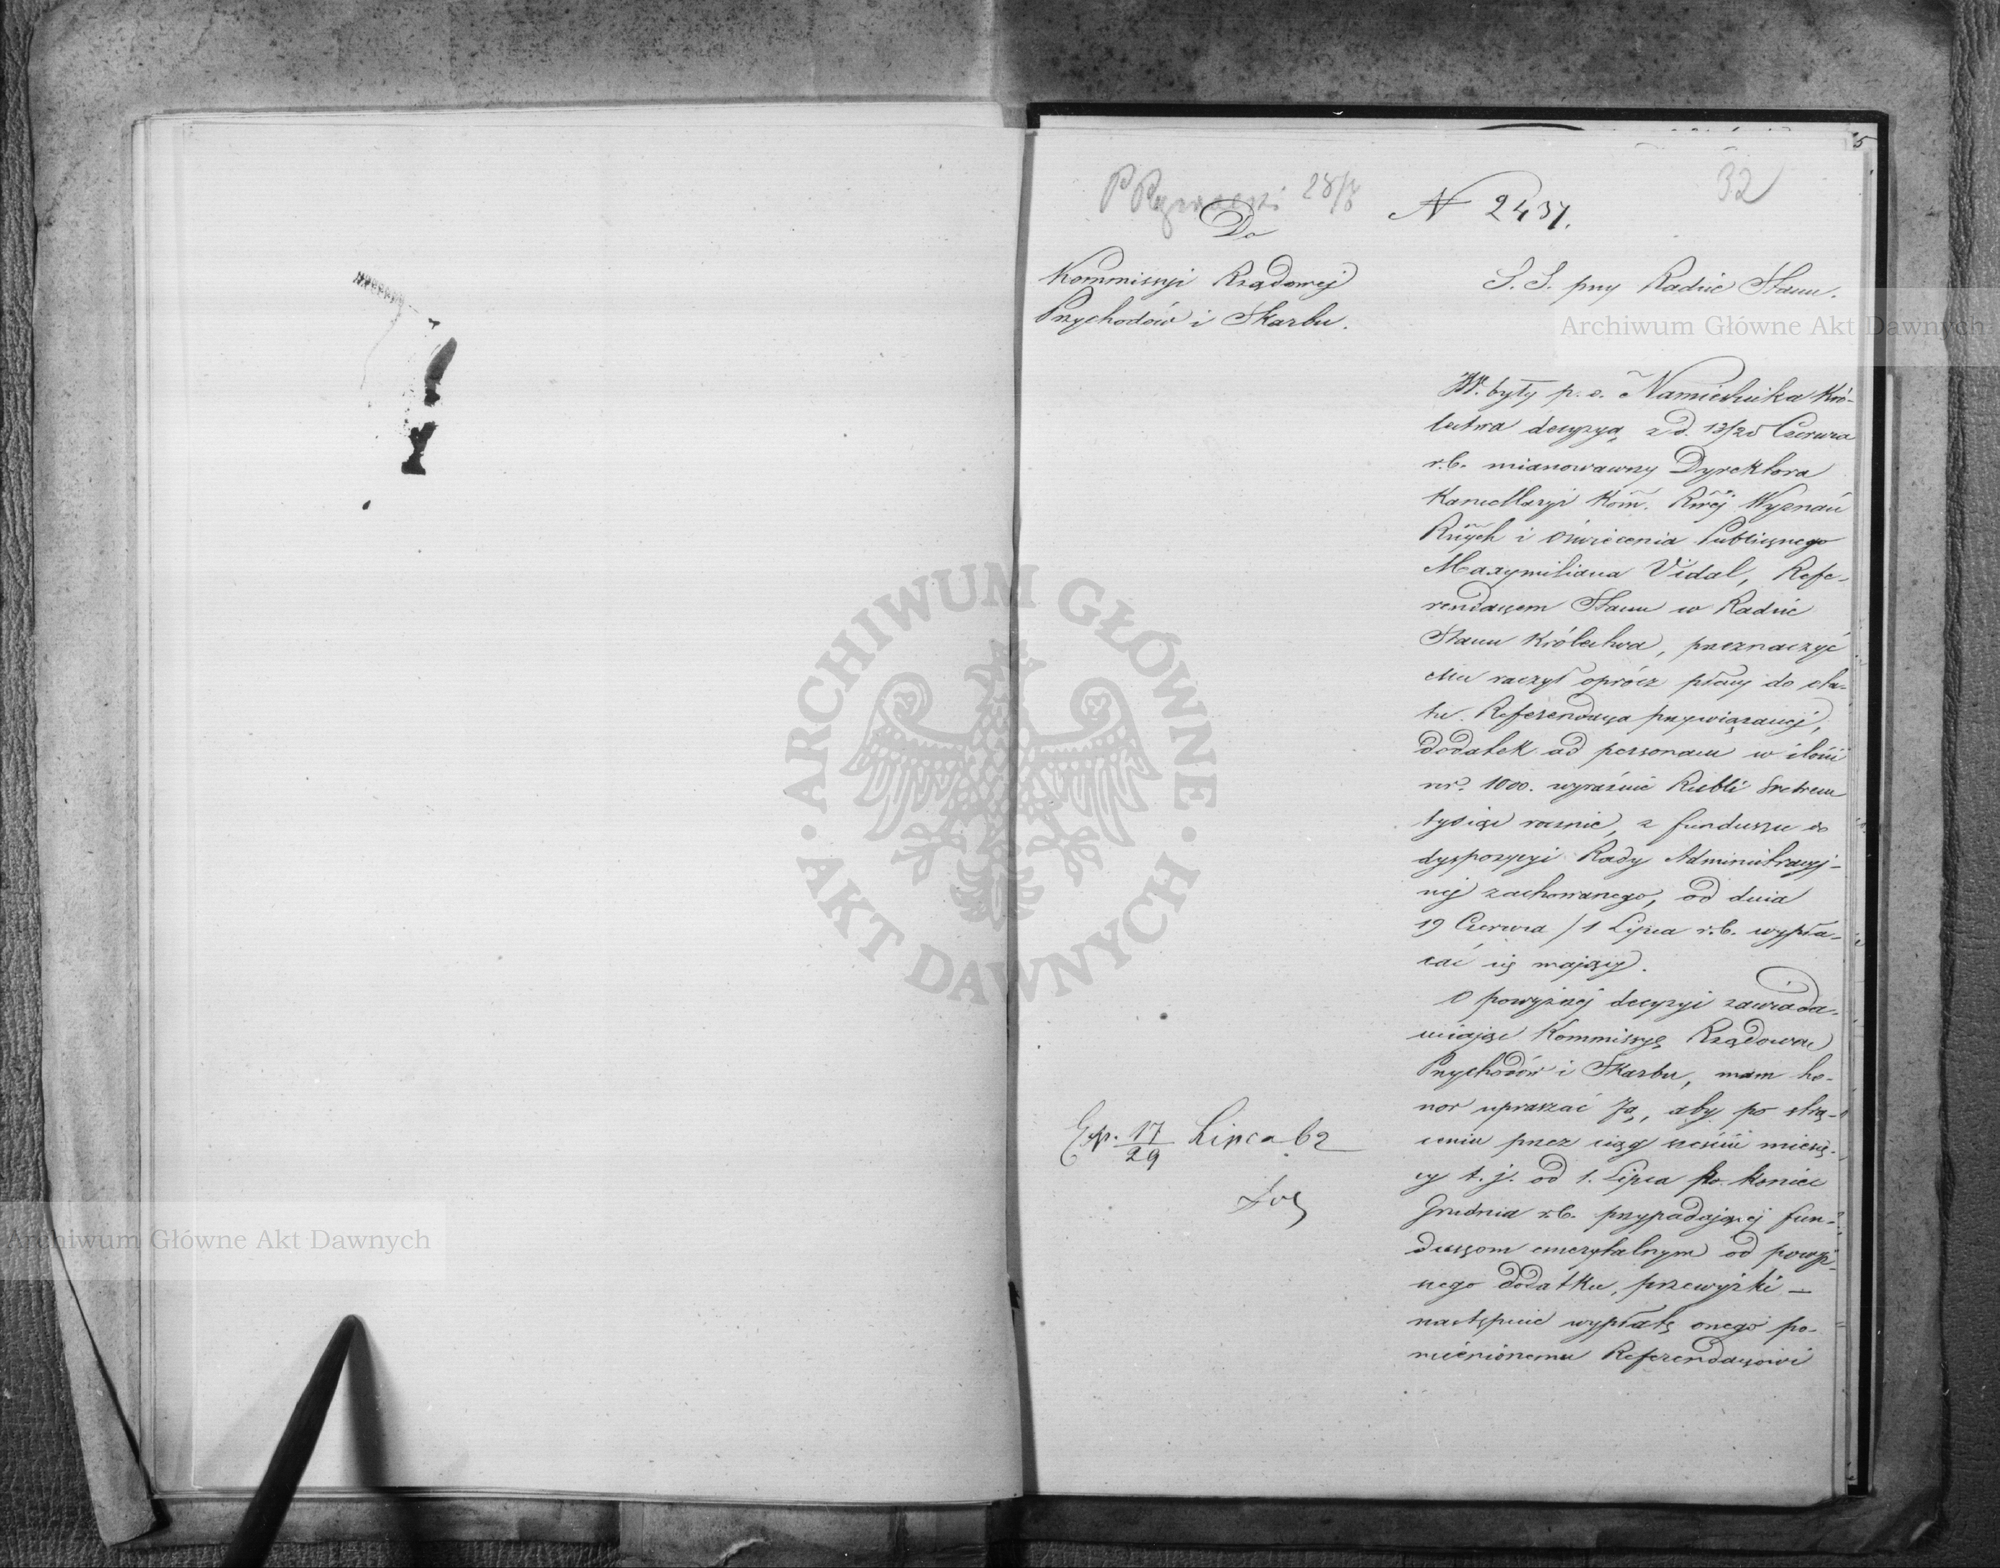 5
32
25/7
N 2437.
Do
Kommissyi Rządowej
Przychodów i Skarbu.
S. S. przy Radzie Stanu.
JW. były p. o. Namiestnika Kró-
lestwa decyzyą z d. 13/25 Czerwca
r.b. mianowawszy Dyrektora
Kancellaryi Kom. Rwej Wyznań
Rnych i Oświecenia Publicznego
Maxymiliana Vidal, Refe-
rendarzem Stanu w Radzie
Stanu Królestwa, przeznaczyć
mu raczył oprócz płacy do eta-
tu Referendarza przywiązanej,
dodatek ad personam w ilości
rsr. 1000. wyraźnie Rubli Srebrem
tysiąc rocznie, z funduszu do
dyspozycyi Rady Administracyj-
nej zachowanego, od dnia
19 Czerwca / 1 Lipca r.b. wypła-
cać się mający.
O powyższej decyzyi zawiada-
miając Kommissyę Rządową
Przychodów i Skarbu, mam ho-
nor upraszać Ją, aby po strą-
ceniu przez ciąg sześciu miesię-
cy t. j. od 1. Lipca po koniec
Grudnia r.b. przypadającej fun-
duszom emerytalnym od powyż-
szego dodatku, przewyżki —
następnie wypłatę onego po-
mienionemu Referendarzowi
Exp. 17/29 Lipca 62
Archiwum Główne Akt Dawnych
Archiwum Główne Akt Dawnych
ARCHIWUM GŁÓWNE
AKT DAWNYCH